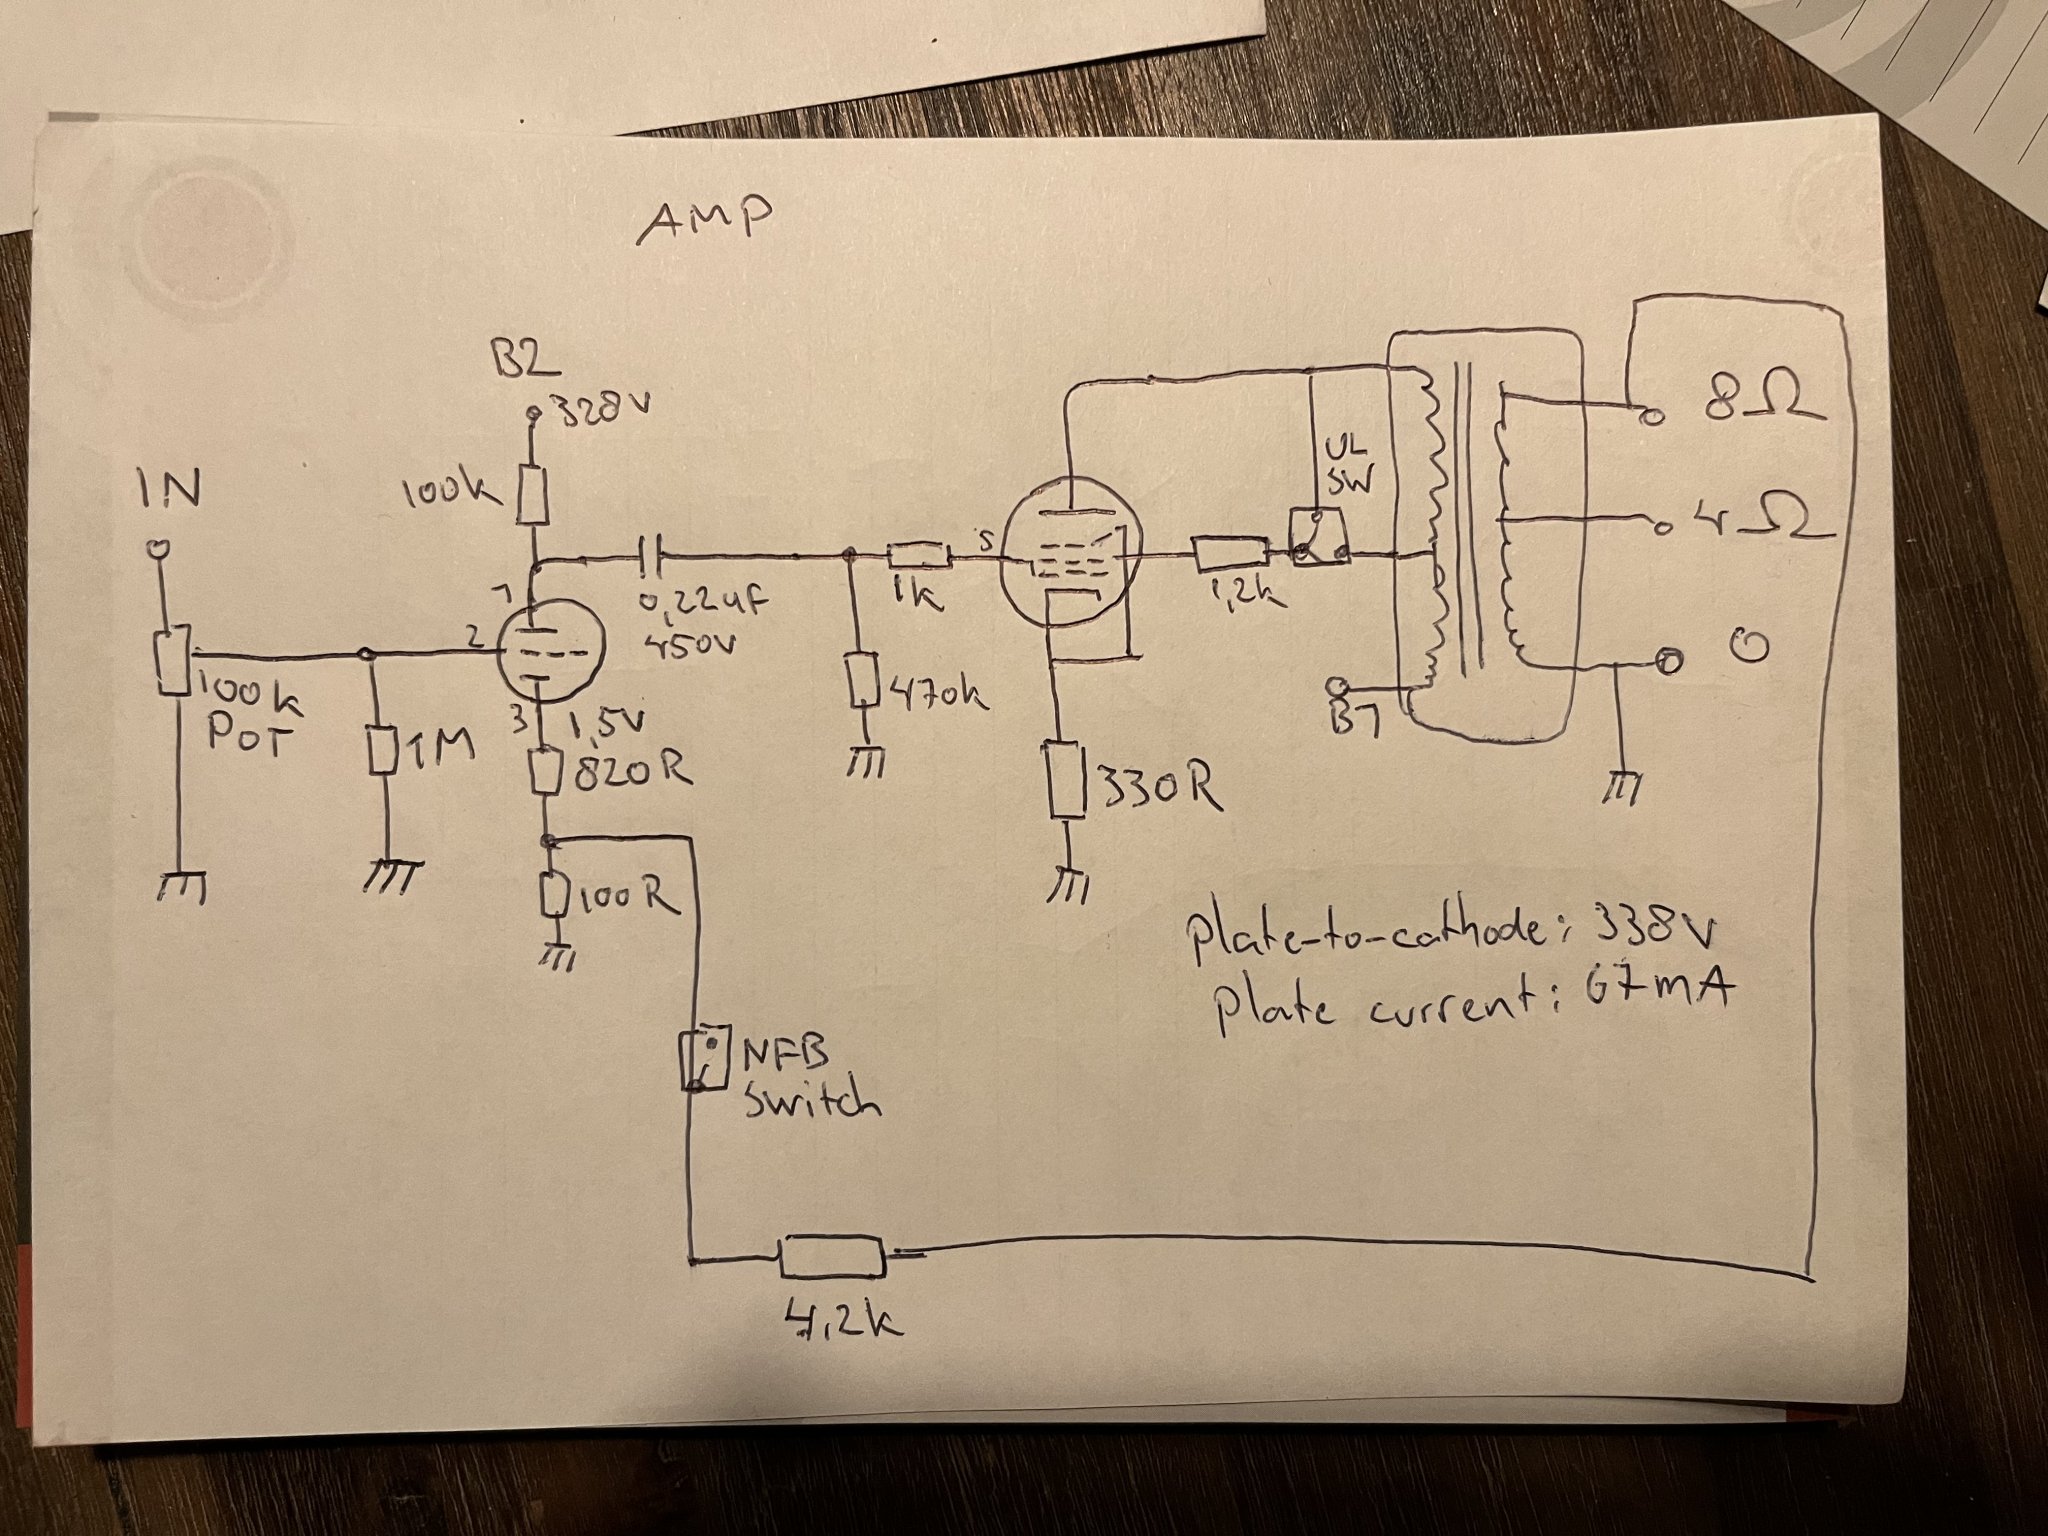 AMP
B2
328V
IN
100k
UL
SW
8Ω
4Ω
0
1
2
3
5
0,22uF
450V
1k
1,2k
100k
POT
1M
1,5V
820R
470k
B1
330R
100R
Plate-to-cathode: 338V
Plate current: 67mA
NFB
Switch
4,2k